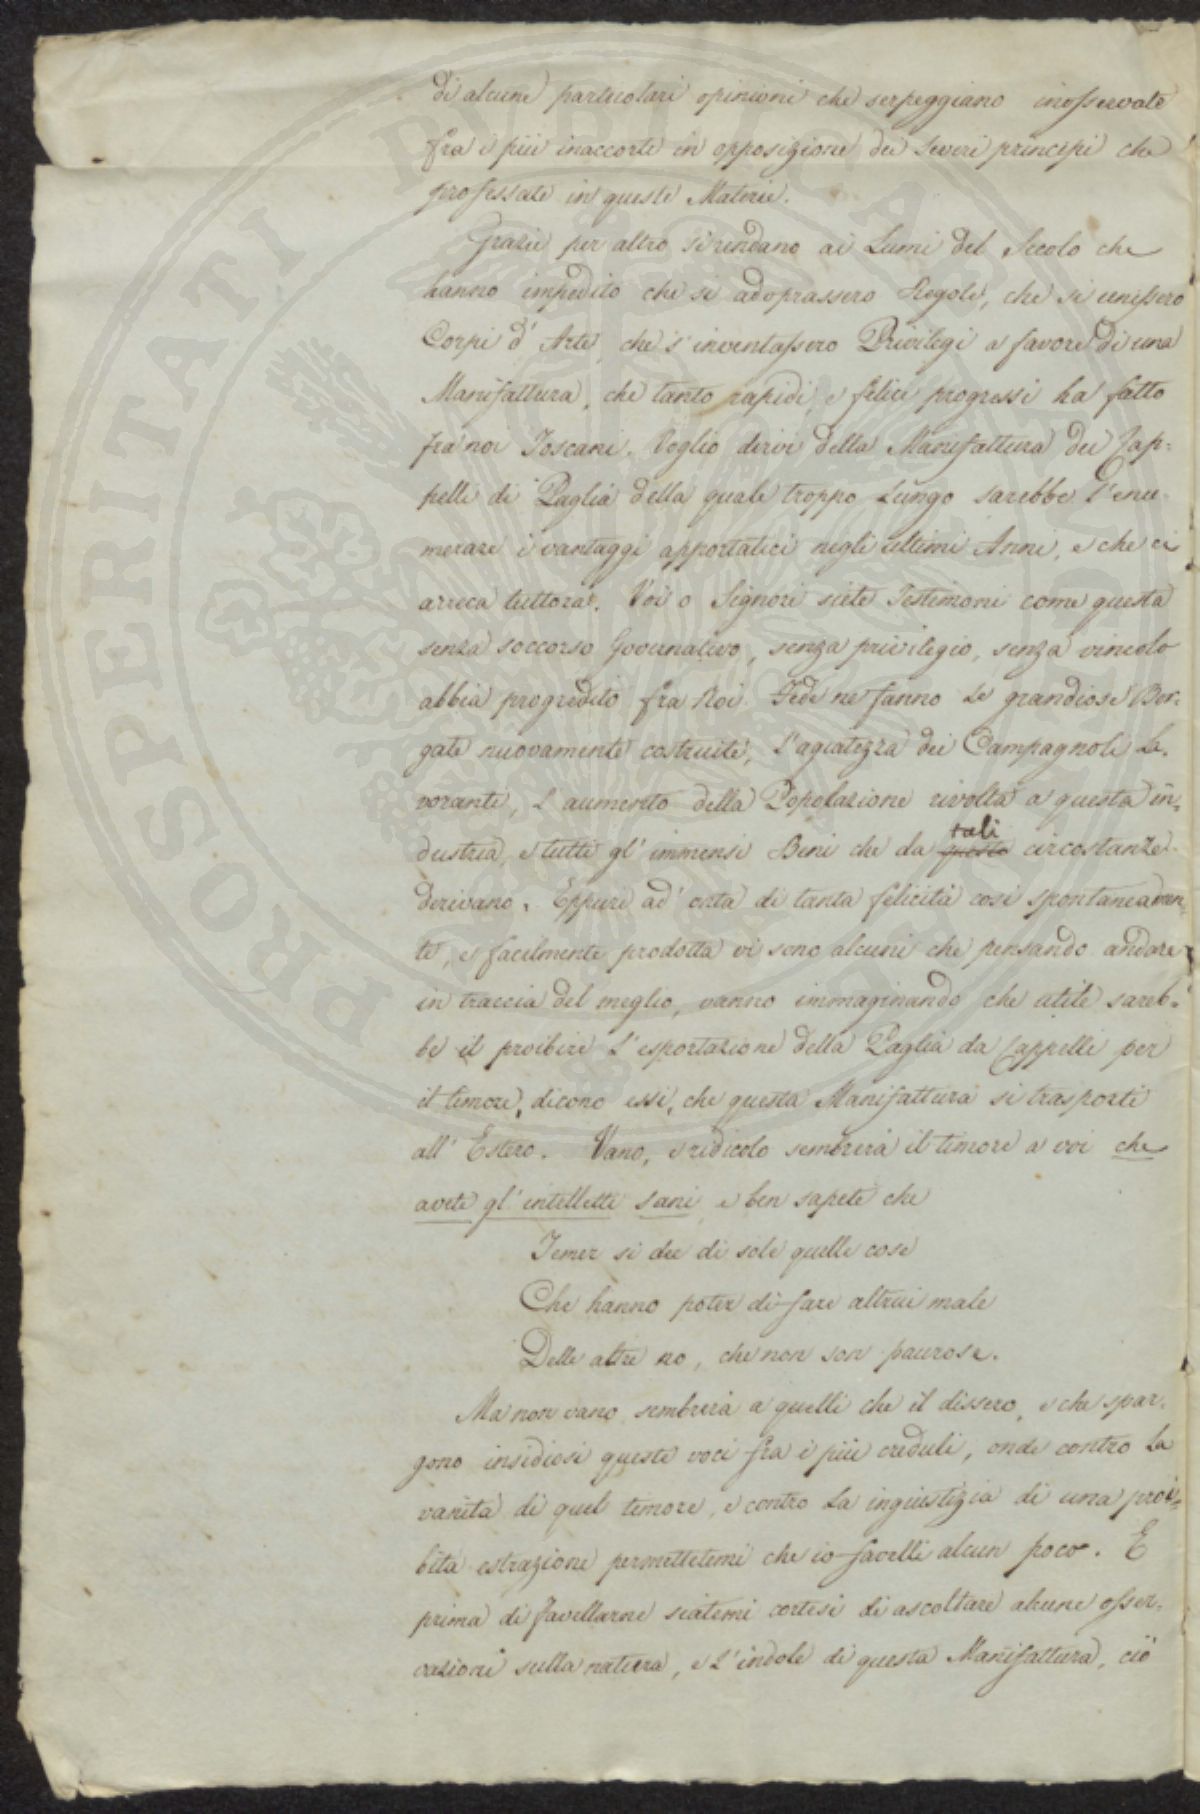 di alcune particolari opinioni che serpeggiano inosservate
fra i più inaccorti in opposizione dei severi principi che
professate in queste Materie.
Grazie per altro si rendano ai Lumi del Secolo che
hanno impedito che si adoprassero Regole, che si unissero
Corpi d'Arte, che s'inventassero Privilegi a favore di una
Manifattura, che tanto rapidi, e felici progressi ha fatto
fra noi Toscani. Voglio dirvi della Manifattura dei Cap=
pelli di Paglia della quale troppo Lungo sarebbe l'enu=
merare i vantaggi apportatici negli ultimi Anni, e che ci
arreca tuttora. Voi o Signori siete Testimoni come questa
senza soccorso Governativo, senza privilegio, senza vincolo
abbia progredito fra Noi. Fede ne fanno Le grandiose Bor=
gate nuovamente costruite, L'agiatezza dei Campagnoli La=
voranti, L'aumento della Popolazione rivolta a questa in=
dustria, e tutti gl'immensi Beni che da queste tali circostanze
derivano. Eppure ad'onta di tanta felicità così spontaneamen=
te, e facilmente prodotta vi sono alcuni che pensando andare
in traccia del meglio, vanno immaginando che utile sareb=
be il proibire L'esportazione della Paglia da Cappelli per
il timore, dicono essi, che questa Manifattura si trasporti
all'Estero. Vano, e ridicolo sembrerà il timore a voi che
avete gl'intelletti sani, e ben sapete che
Temer si dee di sole quelle cose
Che hanno poter di fare altrui male
Delle altre no, che non son paurose.
Ma non vano sembrerà a quelli che il dissero, e che spar=
gono insidiosi queste voci fra i più creduli, onde contro La
vanità di quel timore, e contro La ingiustizia di una proi=
bita estrazione permettetemi che io favelli alcun poco. E
prima di favellarne siatemi cortesi di ascoltare alcune osser=
vazioni sulla natura, e L'indole di questa Manifattura, ciò
PROSPERITATI PUBLICAE